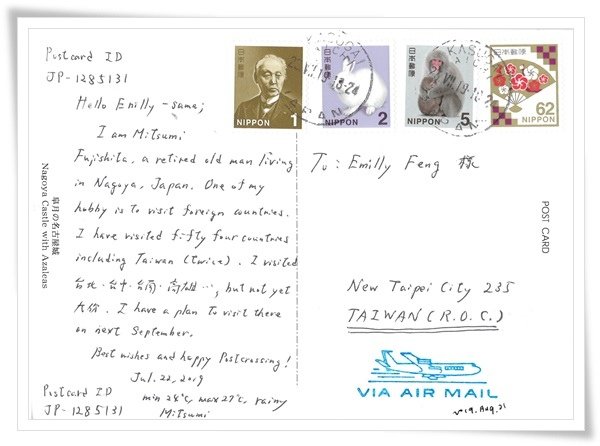 Postcard ID
JP-1285131
Hello Emilly-sama;
I am Mitsumi
Fujishita, a retired old man living
in Nagoya, Japan. One of my
hobby is to visit foreign countries.
I have visited fifty four countries
including Taiwan (twice). I visited
台北・台中・台南・高雄…, but not yet
. I have a plan to visit there
on next September.
Best wishes and happy Postcrossing!
Jul. 22, 2019
min 24°C, max 27°C, rainy
Mitsumi
Postcard ID
JP-1285131
皐月の名古屋城
Nagoya Castle with Azaleas
日本郵便
NIPPON 1
日本郵便
NIPPON 2
日本郵便
NIPPON 5
日本郵便
62
NIPPON
KASUGA
JAPAN
KASUG
To: Emilly Feng 様
POST CARD
New Taipei City 235
TAIWAN (R.O.C.)
VIA AIR MAIL
2019.Aug.